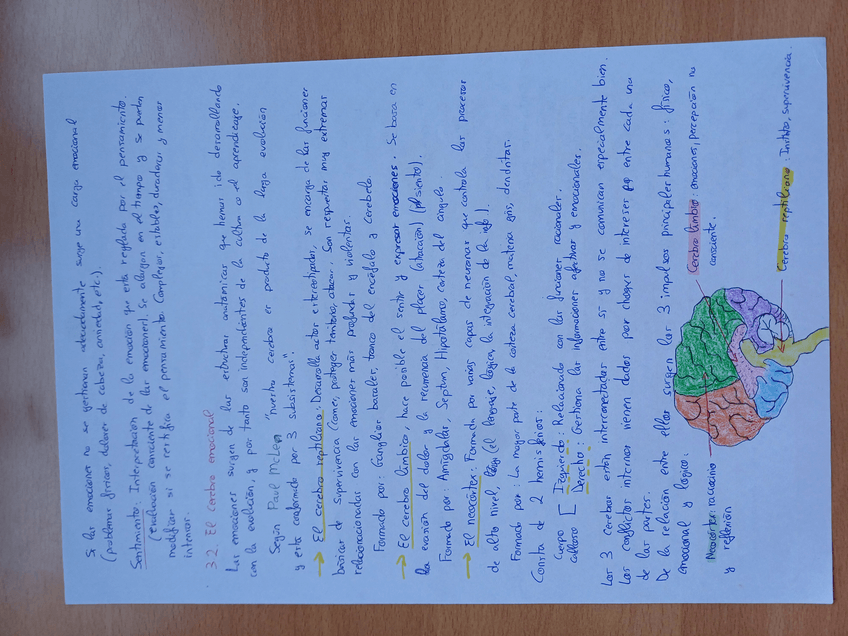 Si las emociones no se gestionan adecuadamente surge una carga emocional
(problemas físicos, dolores de cabeza, ansiedad, etc.).
Sentimiento: Interpretación de la emoción que está reglada por el pensamiento.
(evaluación consciente de las emociones). Se alargan en el tiempo y se pueden
modificar si se rectifica el pensamiento. Complejos, estables, duraderos y menos
intensos.
3.2. El cerebro emocional
Las emociones surgen de las estructuras anatómicas que hemos ido desarrollando
con la evolución, y por tanto son independientes de la cultura o el aprendizaje.
Según Paul McLean "nuestro cerebro es producto de la larga evolución
y está conformado por 3 subsistemas".
→ El cerebro reptiliano: Desarrolla actos estereotipados, se encarga de las funciones
básicas de supervivencia (comer, proteger territorio, atacar. Son respuestas muy extremas
relacionadas con las emociones más profundas y violentas.
Formado por: Ganglios basales, tronco del encéfalo y cerebelo.
→ El cerebro límbico, hace posible el sentir y expresar emociones. Se basa en
la evasión del dolor y la recurrencia del placer (atracción) (
Formado por: Amígdalas, Septum, Hipotálamo, corteza del cíngulo.
→ El neocórtex: Formado por varias capas de neuronas que controla los procesos
de alto nivel, (el lenguaje, lógica, la integración de la info).
Formado por: La mayor parte de la corteza cerebral, materia gris, dendritas.
Consta de 2 hemisferios:
Cuerpo [ Izquierdo: Relacionado con las funciones racionales.
calloso Derecho: Gestiona las informaciones afectivas y emocionales.
Los 3 cerebros están interconectados entre sí y no se comunican especialmente bien.
Los conflictos internos vienen dados por choques de intereses entre cada una
de las partes.
De la relación entre ellos surgen los 3 impulsos principales humanos: físico,
emocional y lógico.
Neocórtex: raciocinio
y reflexión
Cerebro límbico: emociones, percepción no
consciente.
Cerebro reptiliano: Instinto, supervivencia.